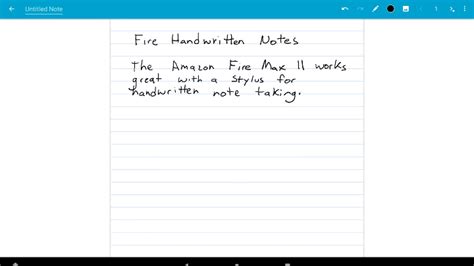 Untitled Note
1
Fire Handwritten Notes
The Amazon Fire Max 11 works
great with a stylus for
handwritten note taking.